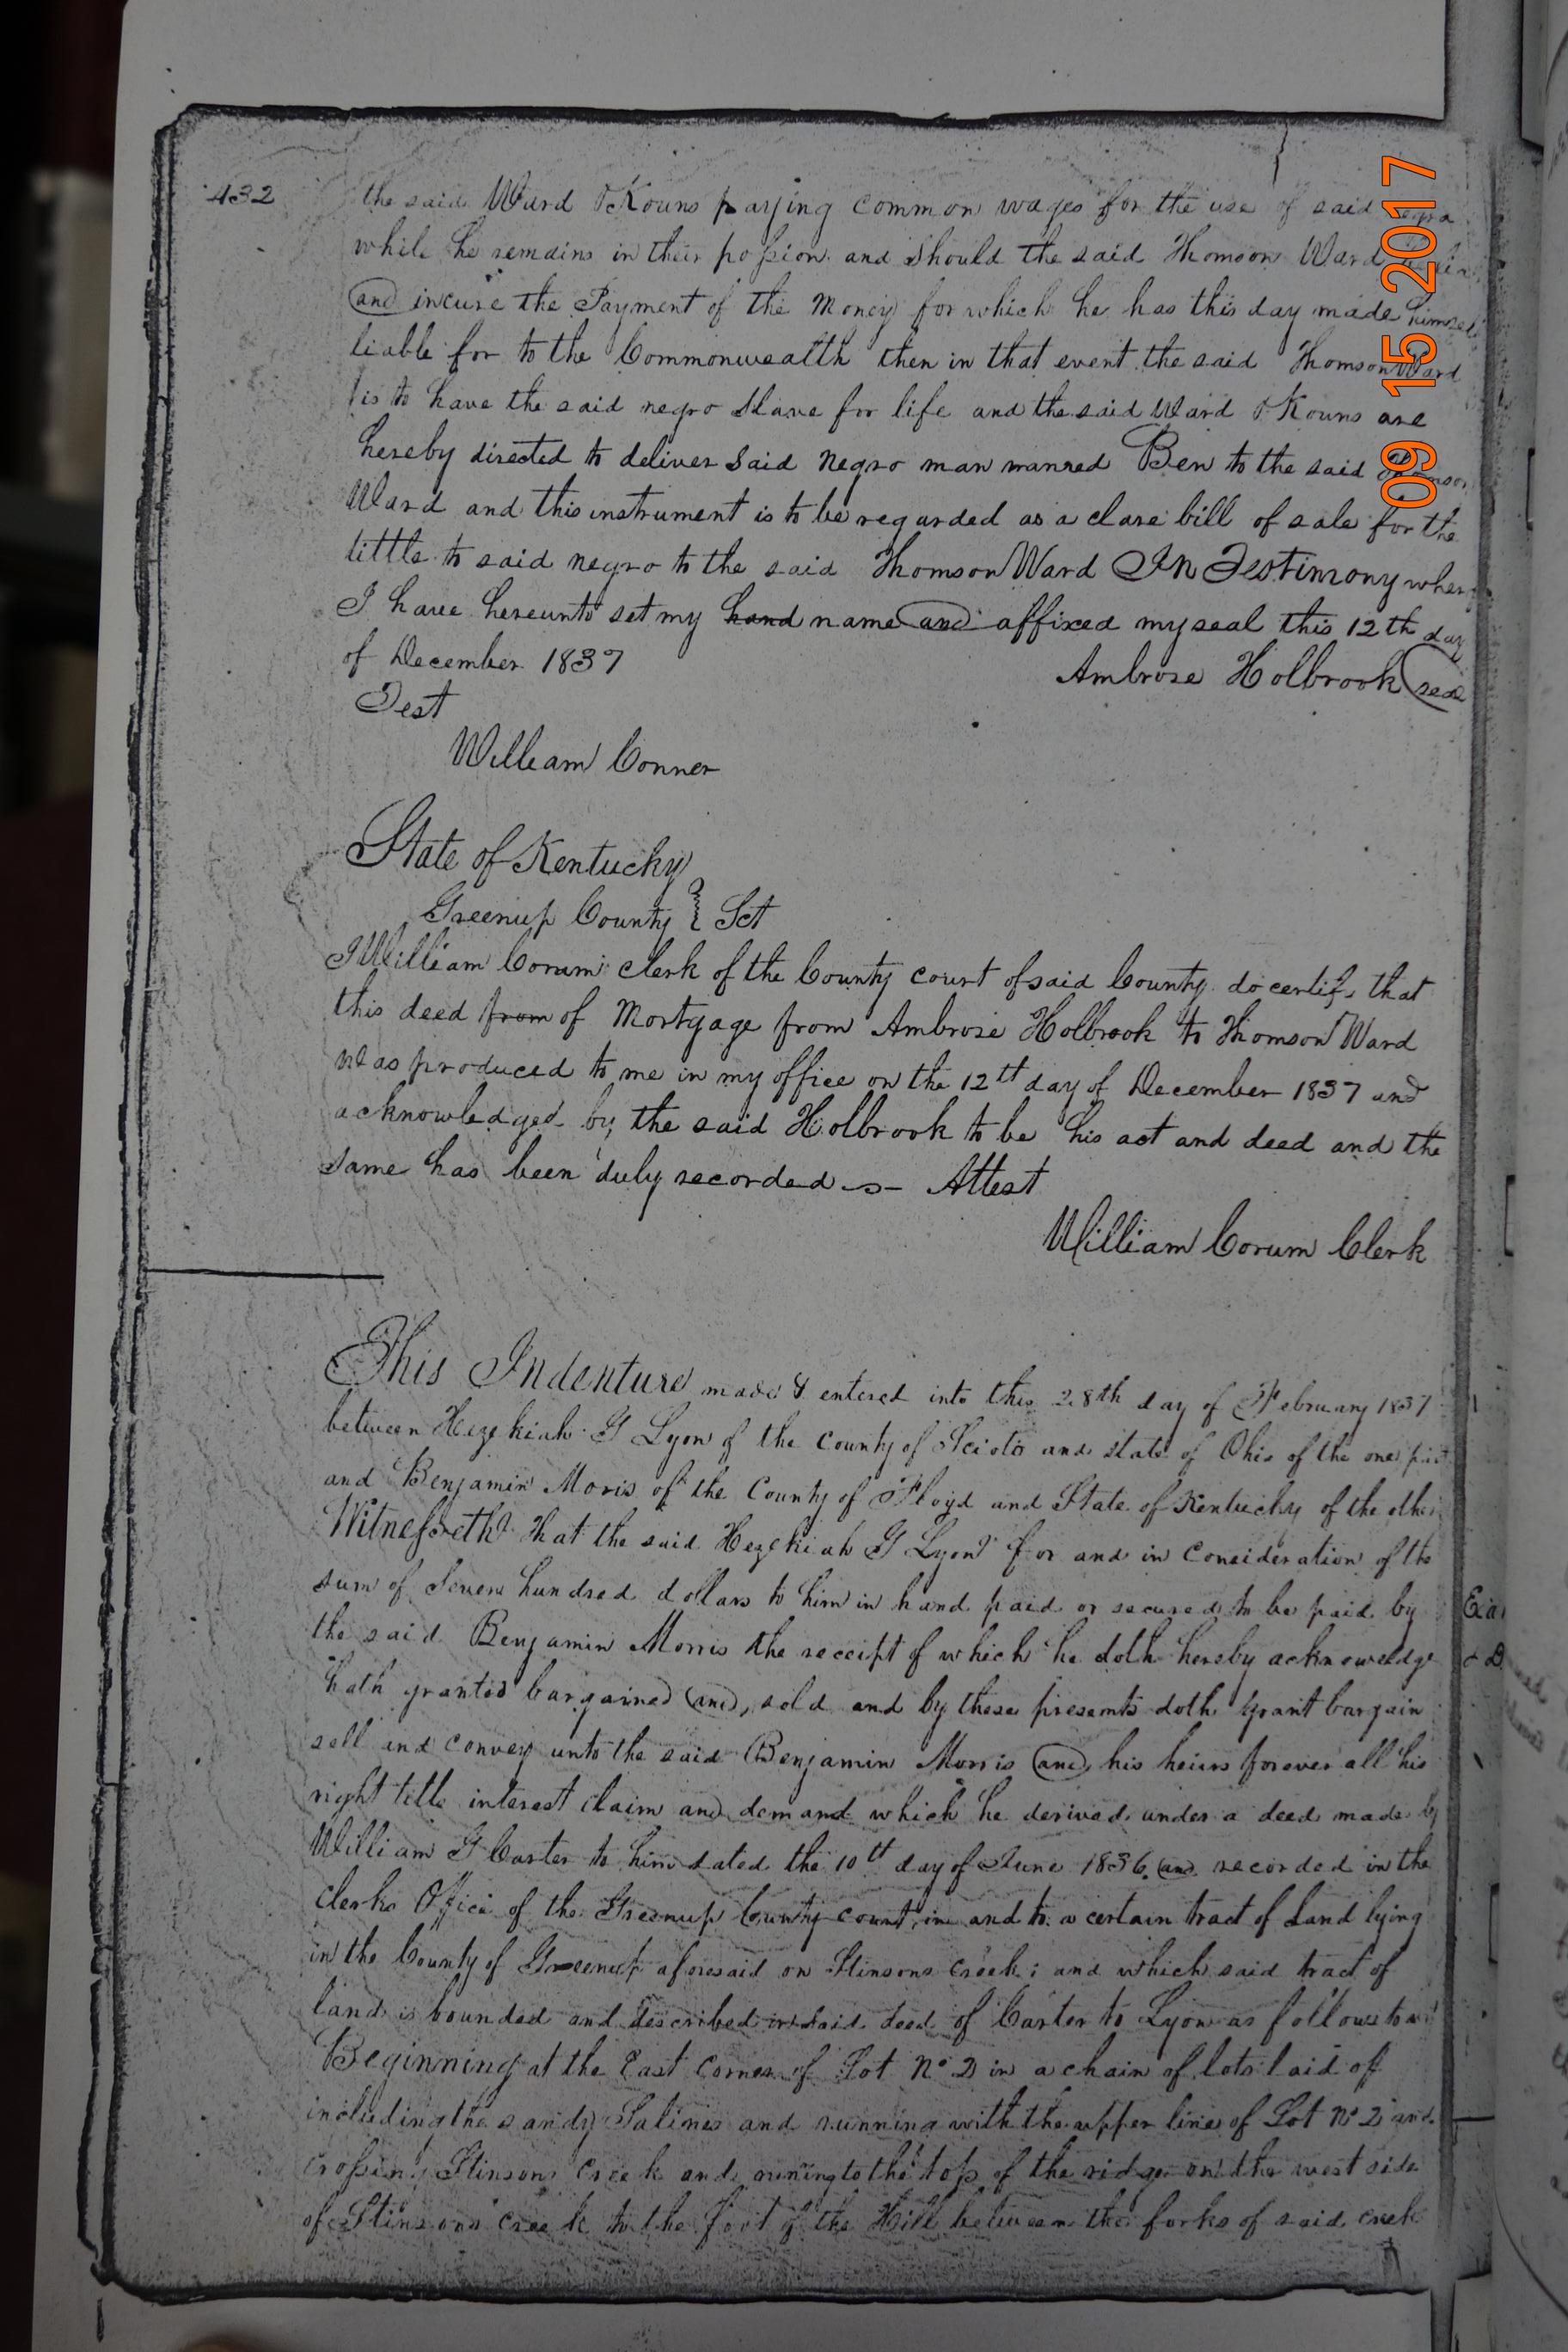 432
the said Ward & Kouns paying common wages for the use of said negro
while he remains in their possion and should the said Thomson Ward
and incure the Payment of the Money for which he has this day made himself
liable for to the Commonwealth then in that event the said Thomson Ward
is to have the said negro slave for life and the said Ward & Kouns are
hereby directed to deliver said negro man manred Ben to the said Thomson
Ward and this instrument is to be regarded as a clare bill of sale for the
tittle to said negro to the said Thomson Ward In Testimony where
I have hereunto set my hand name and affixed my seal this 12th day
of December 1837
Ambrose Holbrook seal
Test
William Conner
State of Kentucky
Greenup County } Sct
I William Corum clerk of the County court of said County do certify that
this deed from of Mortgage from Ambrose Holbrook to Thomson Ward
was produced to me in my office on the 12th day of December 1837 and
acknowledged by the said Holbrook to be his act and deed and the
same has been duly recorded Attest
William Corum Clerk
This Indenture made & entered into this 28th day of February 1837
between Hezekiah G Lyon of the county of Scioto and state of Ohio of the one part
and Benjamin Moris of the County of Floyd and State of Kentucky of the other
Witnesseth that the said Hezekiah G Lyon for and in consideration of the
sum of Seven hundred dollars to him in hand paid or secured to be paid by
the said Benjamin Morris the receipt of which he doth hereby acknoweldge
hath granted bargained and, sold and by these presents doth grant bargain
sell and convey unto the said Benjamin Morris and his heirs forever all his
right title interest claim and demand which he derived under a deed made by
William G Carter to him dated the 10th day of June 1836 and recorded in the
clerks Office of the Greenup County court in and to a certain tract of Land lying
in the County of Greenup aforesaid on Stinsons creek; and which said tract of
land is bounded and described in said deed of Carter to Lyon as follows to wit
Beginning at the East corner of Lot No 2 in a chain of lots laid of
including the sandy Salines and running with the upper line of Lot No 2 and
crossing Stinsons creek and runing to the top of the ridge on the west side
of Stinsons creek to the foot of the Hill between the forks of said creek
09 15 2017